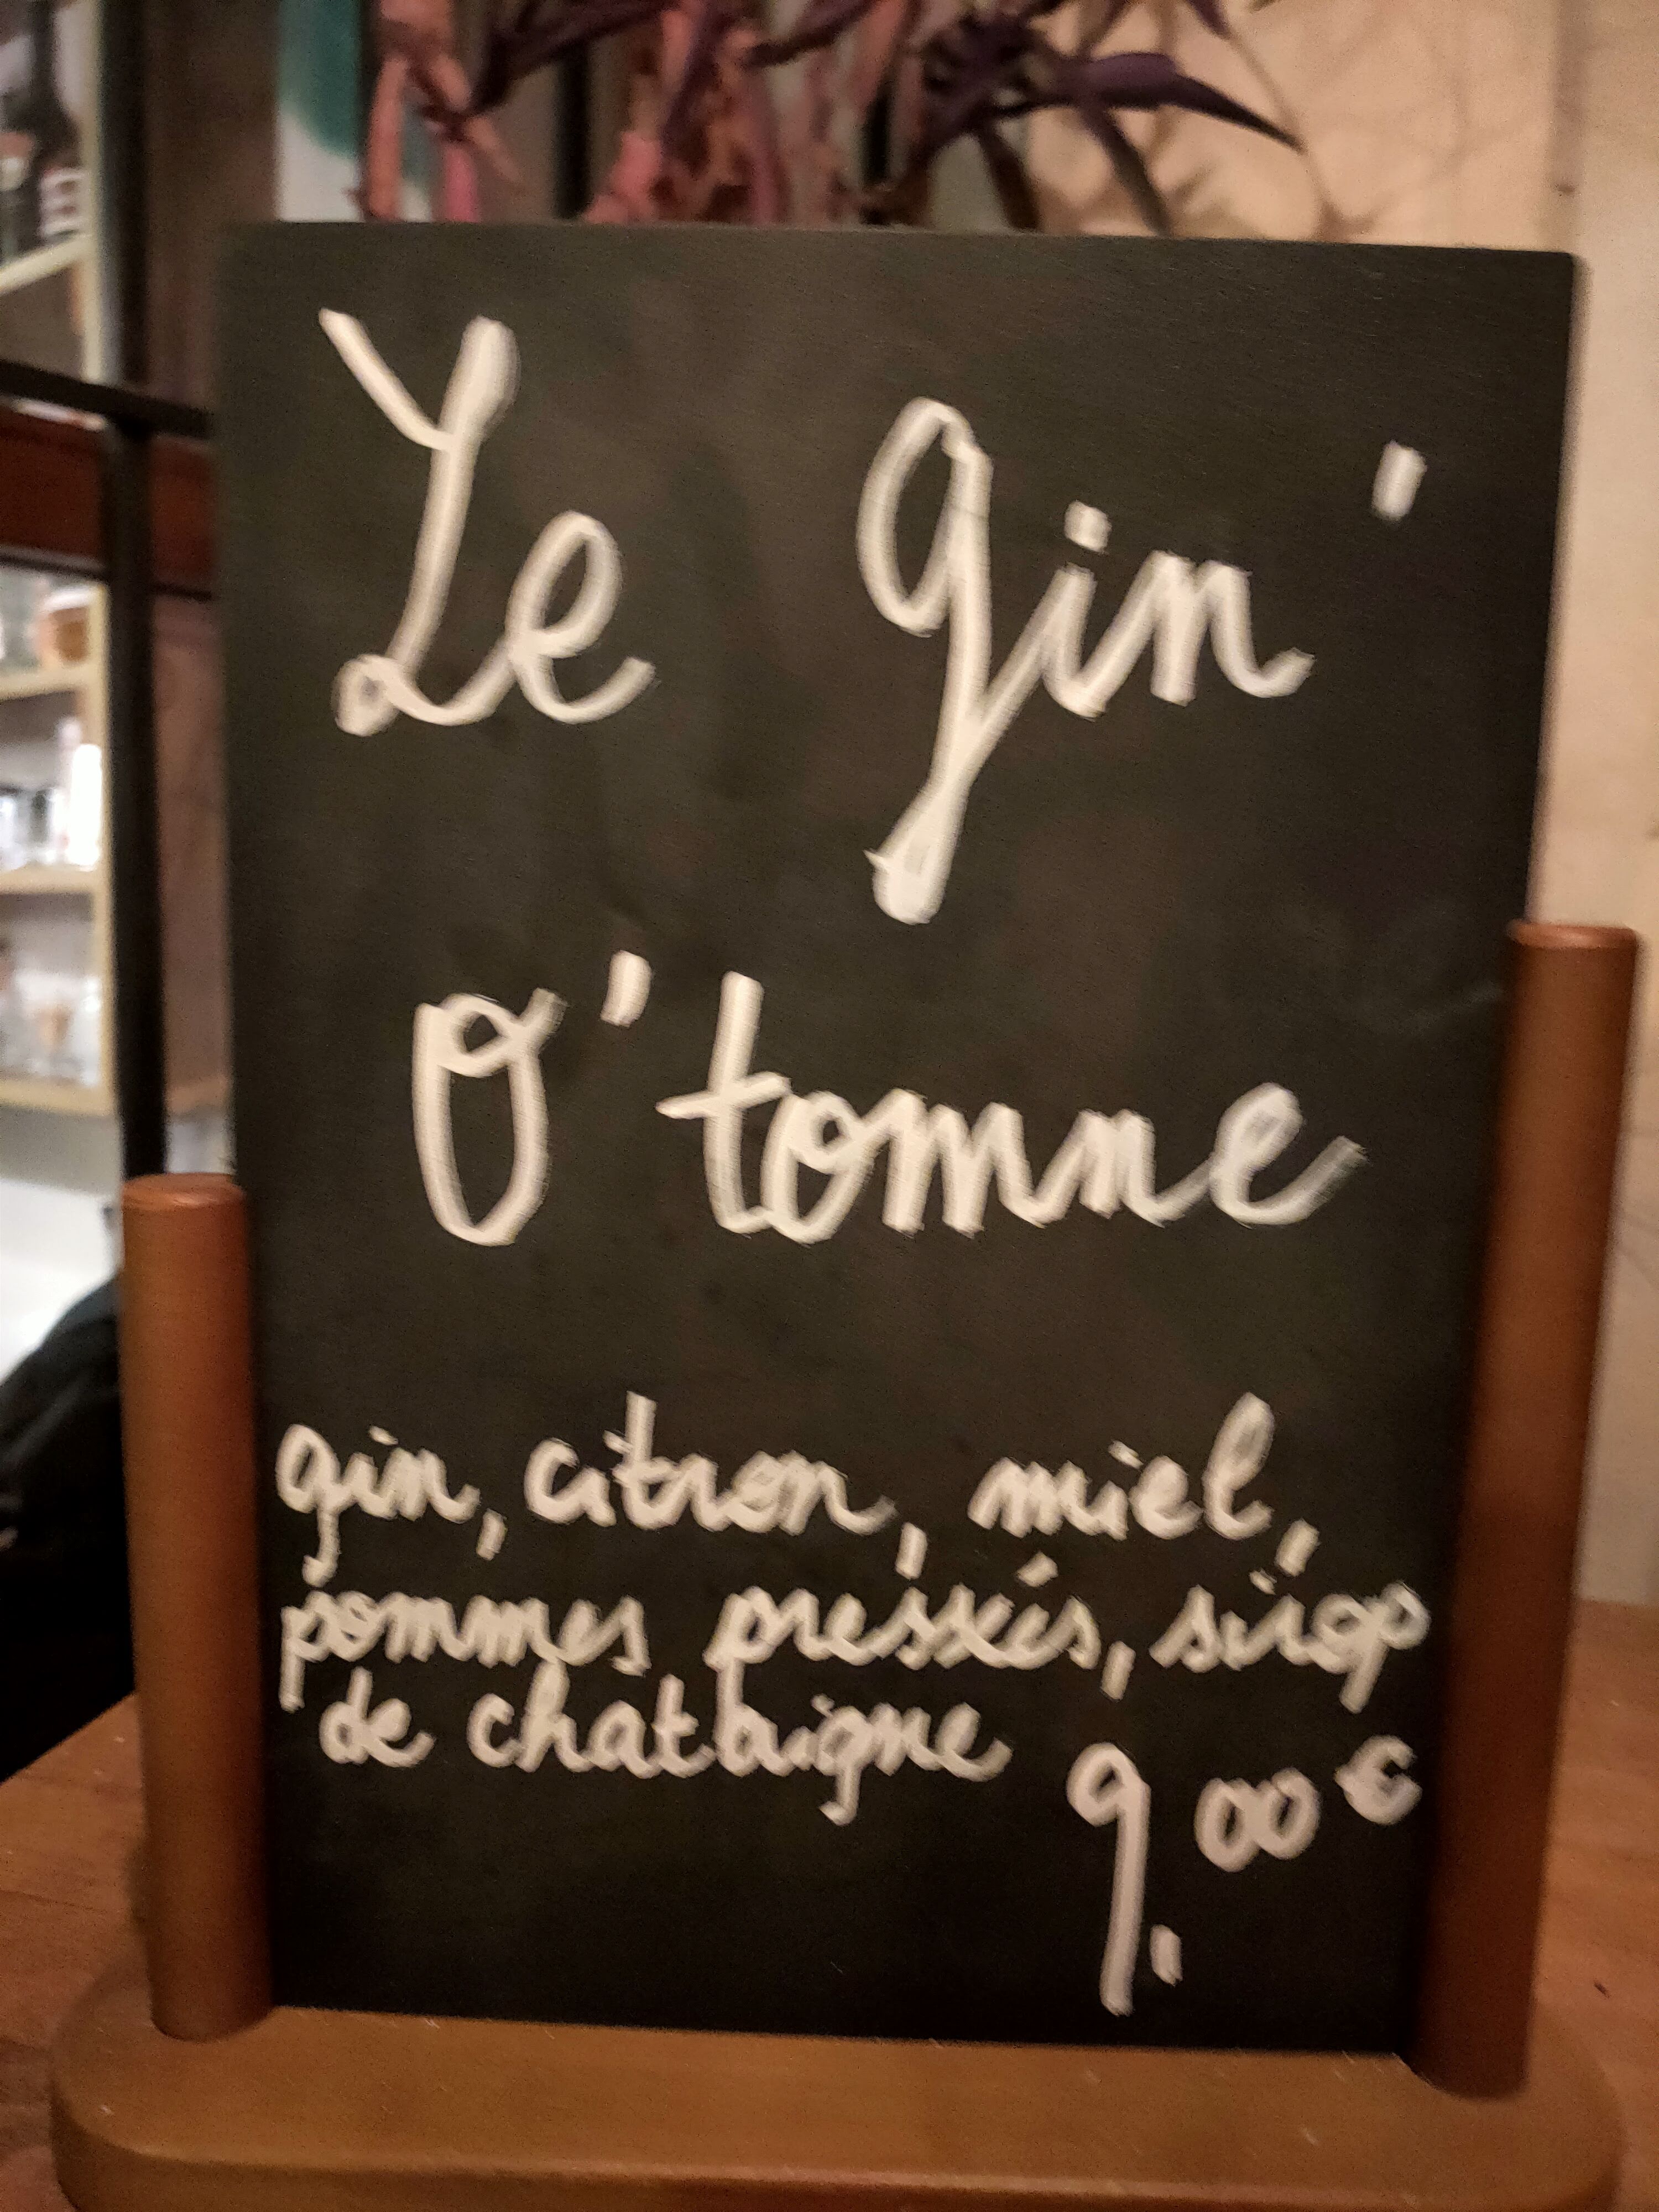 Le Gin'
O'tomne
gin, citron, miel,
pommes préssés, sirop
de chataigne
9,00€